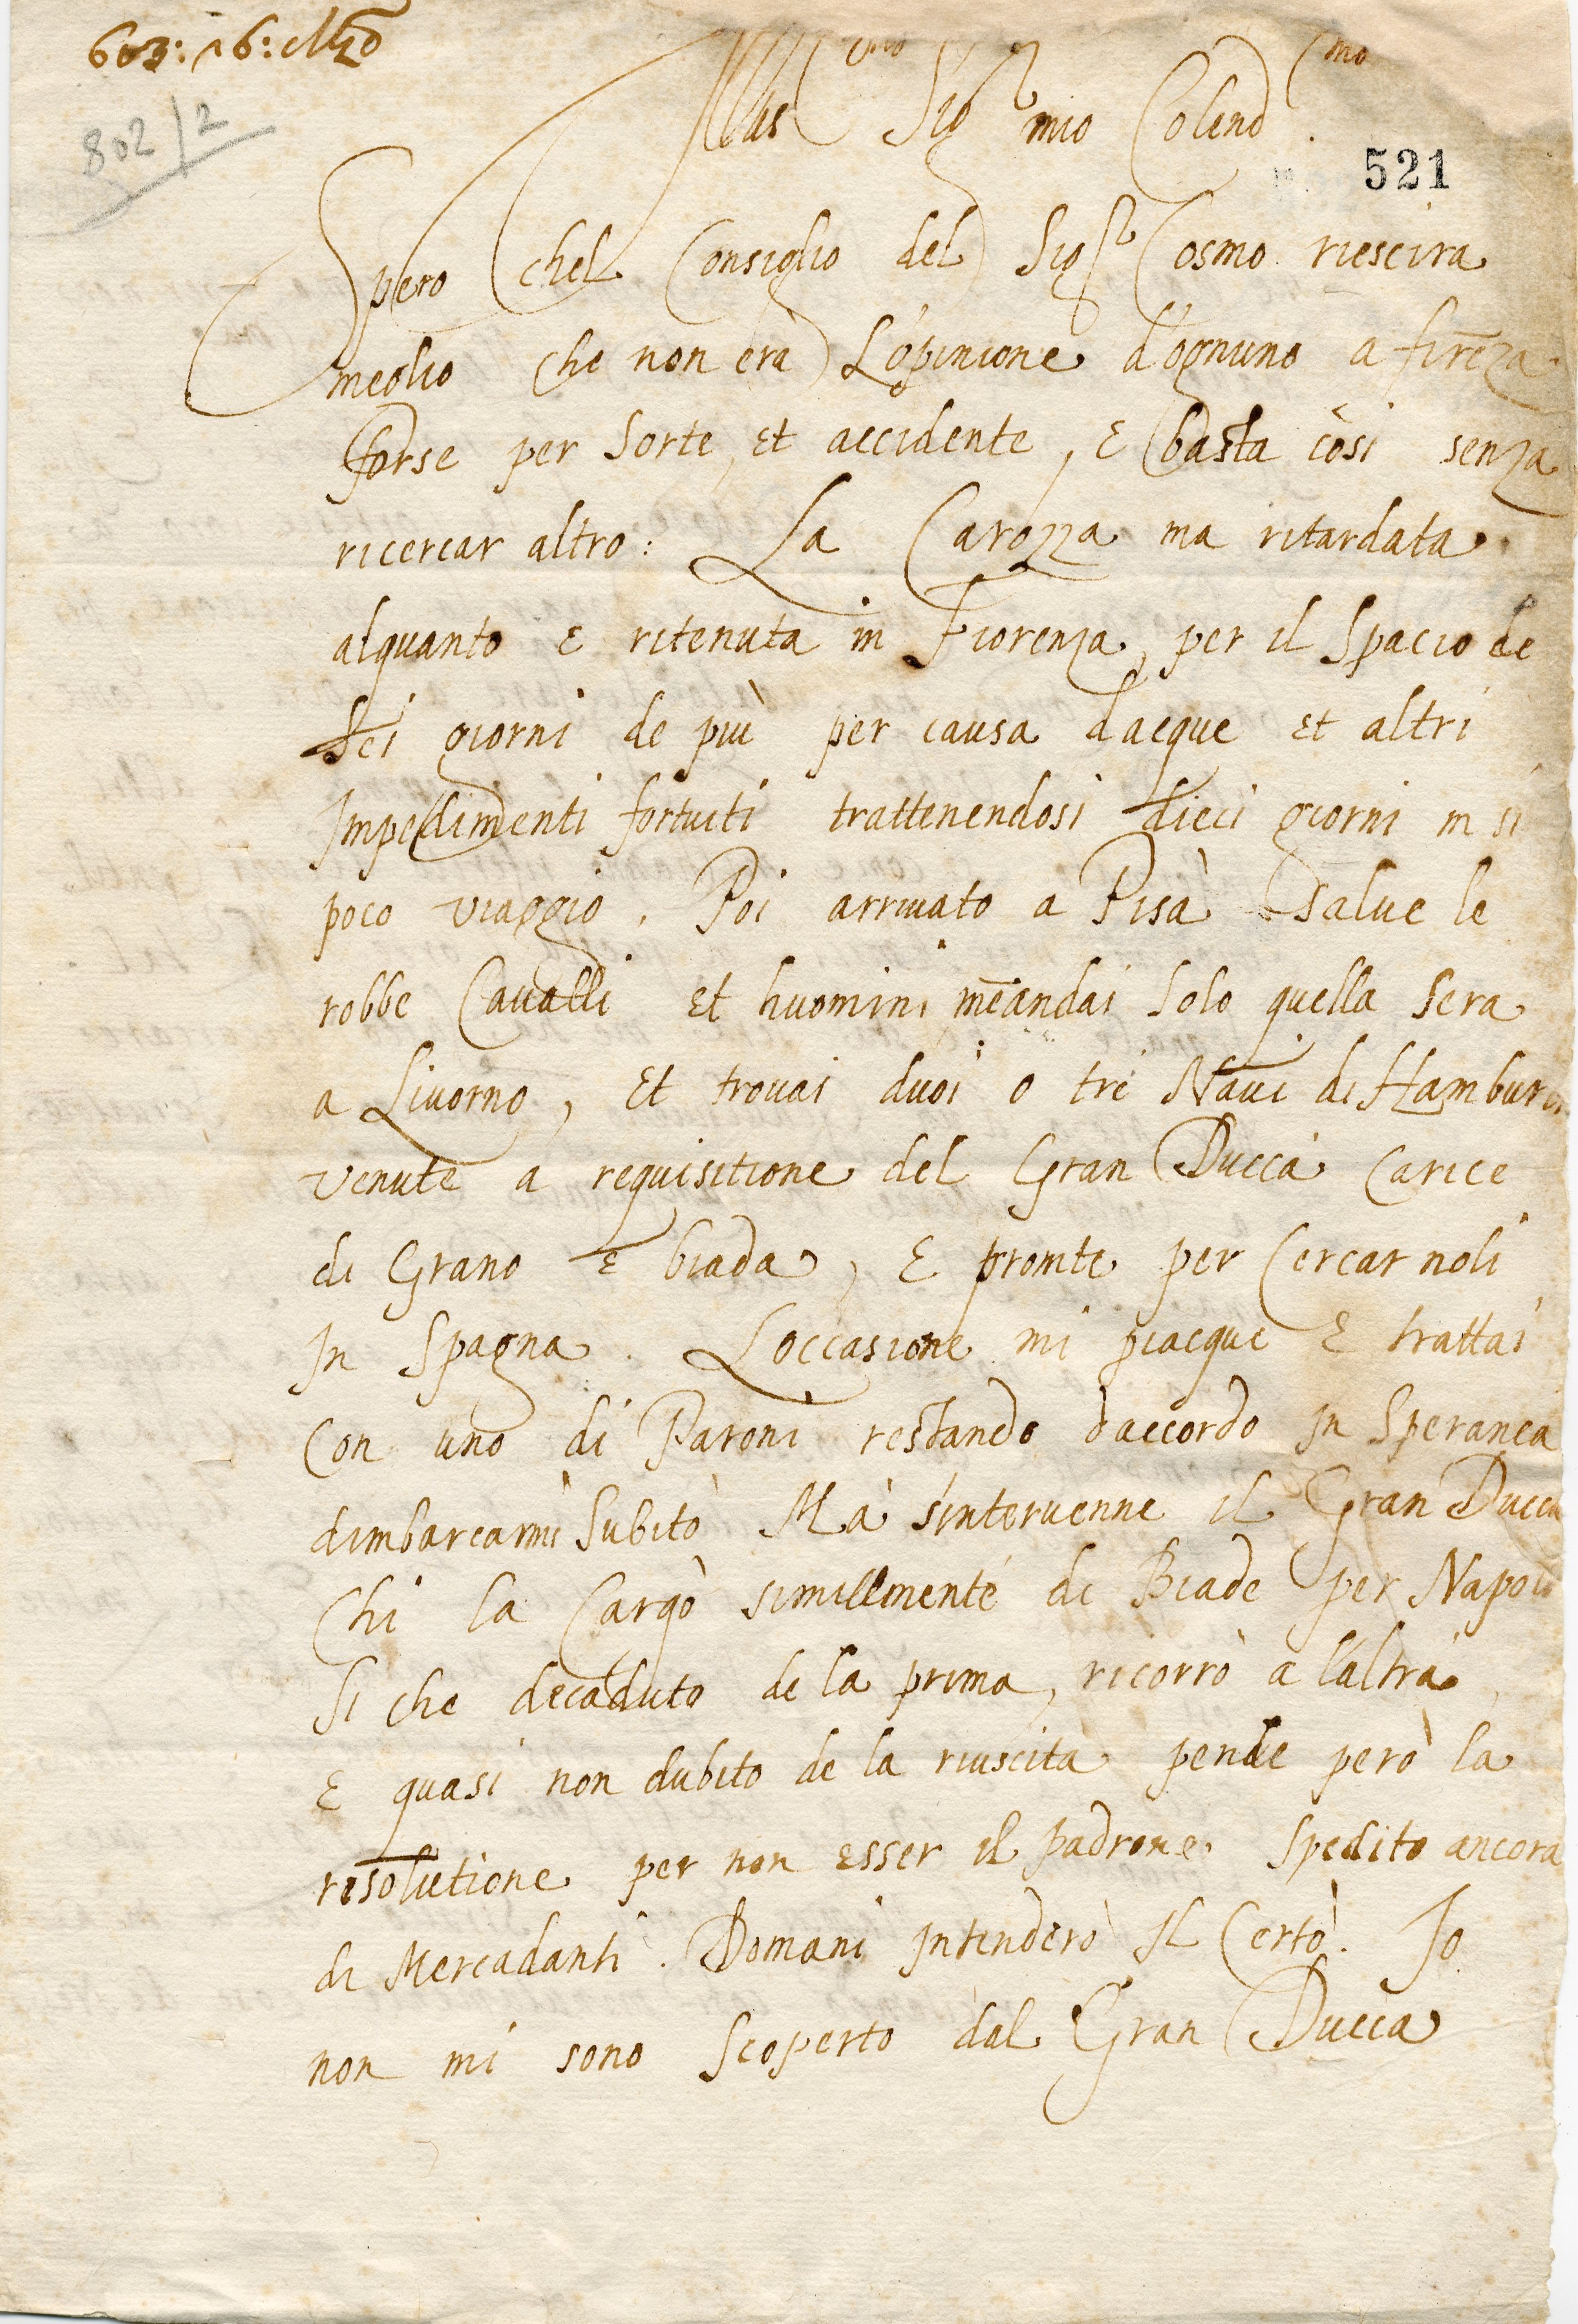 603: 16: Mzo
802/2
Illus mo Sigr mio Colend mo
521
Spero chel Consiglio del Sigr Cosmo riescira
meglio che non era L'opinione d'ognuno a firēza
forse per sorte, et accidente, e basta così senza
ricercar altro: La Carozza ma ritardata
alquanto e ritenuta in Fiorenza, per il Spacio de
sei giorni de più per causa dacque et altri
Impedimenti fortuiti trattenendosi dieci giorni in si
poco viaggio. Poi arrivato a Pisa salve le
robbe Cavalli et huomini mēandai solo quella sera
a Livorno, et trovai duoi o tre Navi di Hamburgo
venute a requisitione del Gran Ducca carice
di Grano e biada, e promte per cercar noli
In Spagna. Loccasione mi piacque e trattai
con uno di Paroni restando daccordo in Speranca
dimbarcarmi Subito Ma s'intervenne il Gran Ducca
Chi la Cargò simillmente di Biade per Napoli
Si che decaduto de la prima, ricorrò a l'altra,
e quasi non dubito de la riuscita pende però la
resolutione per non esser il padrone spedito ancora
di Mercadanti. Domani intenderò il Certo. Io
non mi sono scoperto dal Gran Ducca